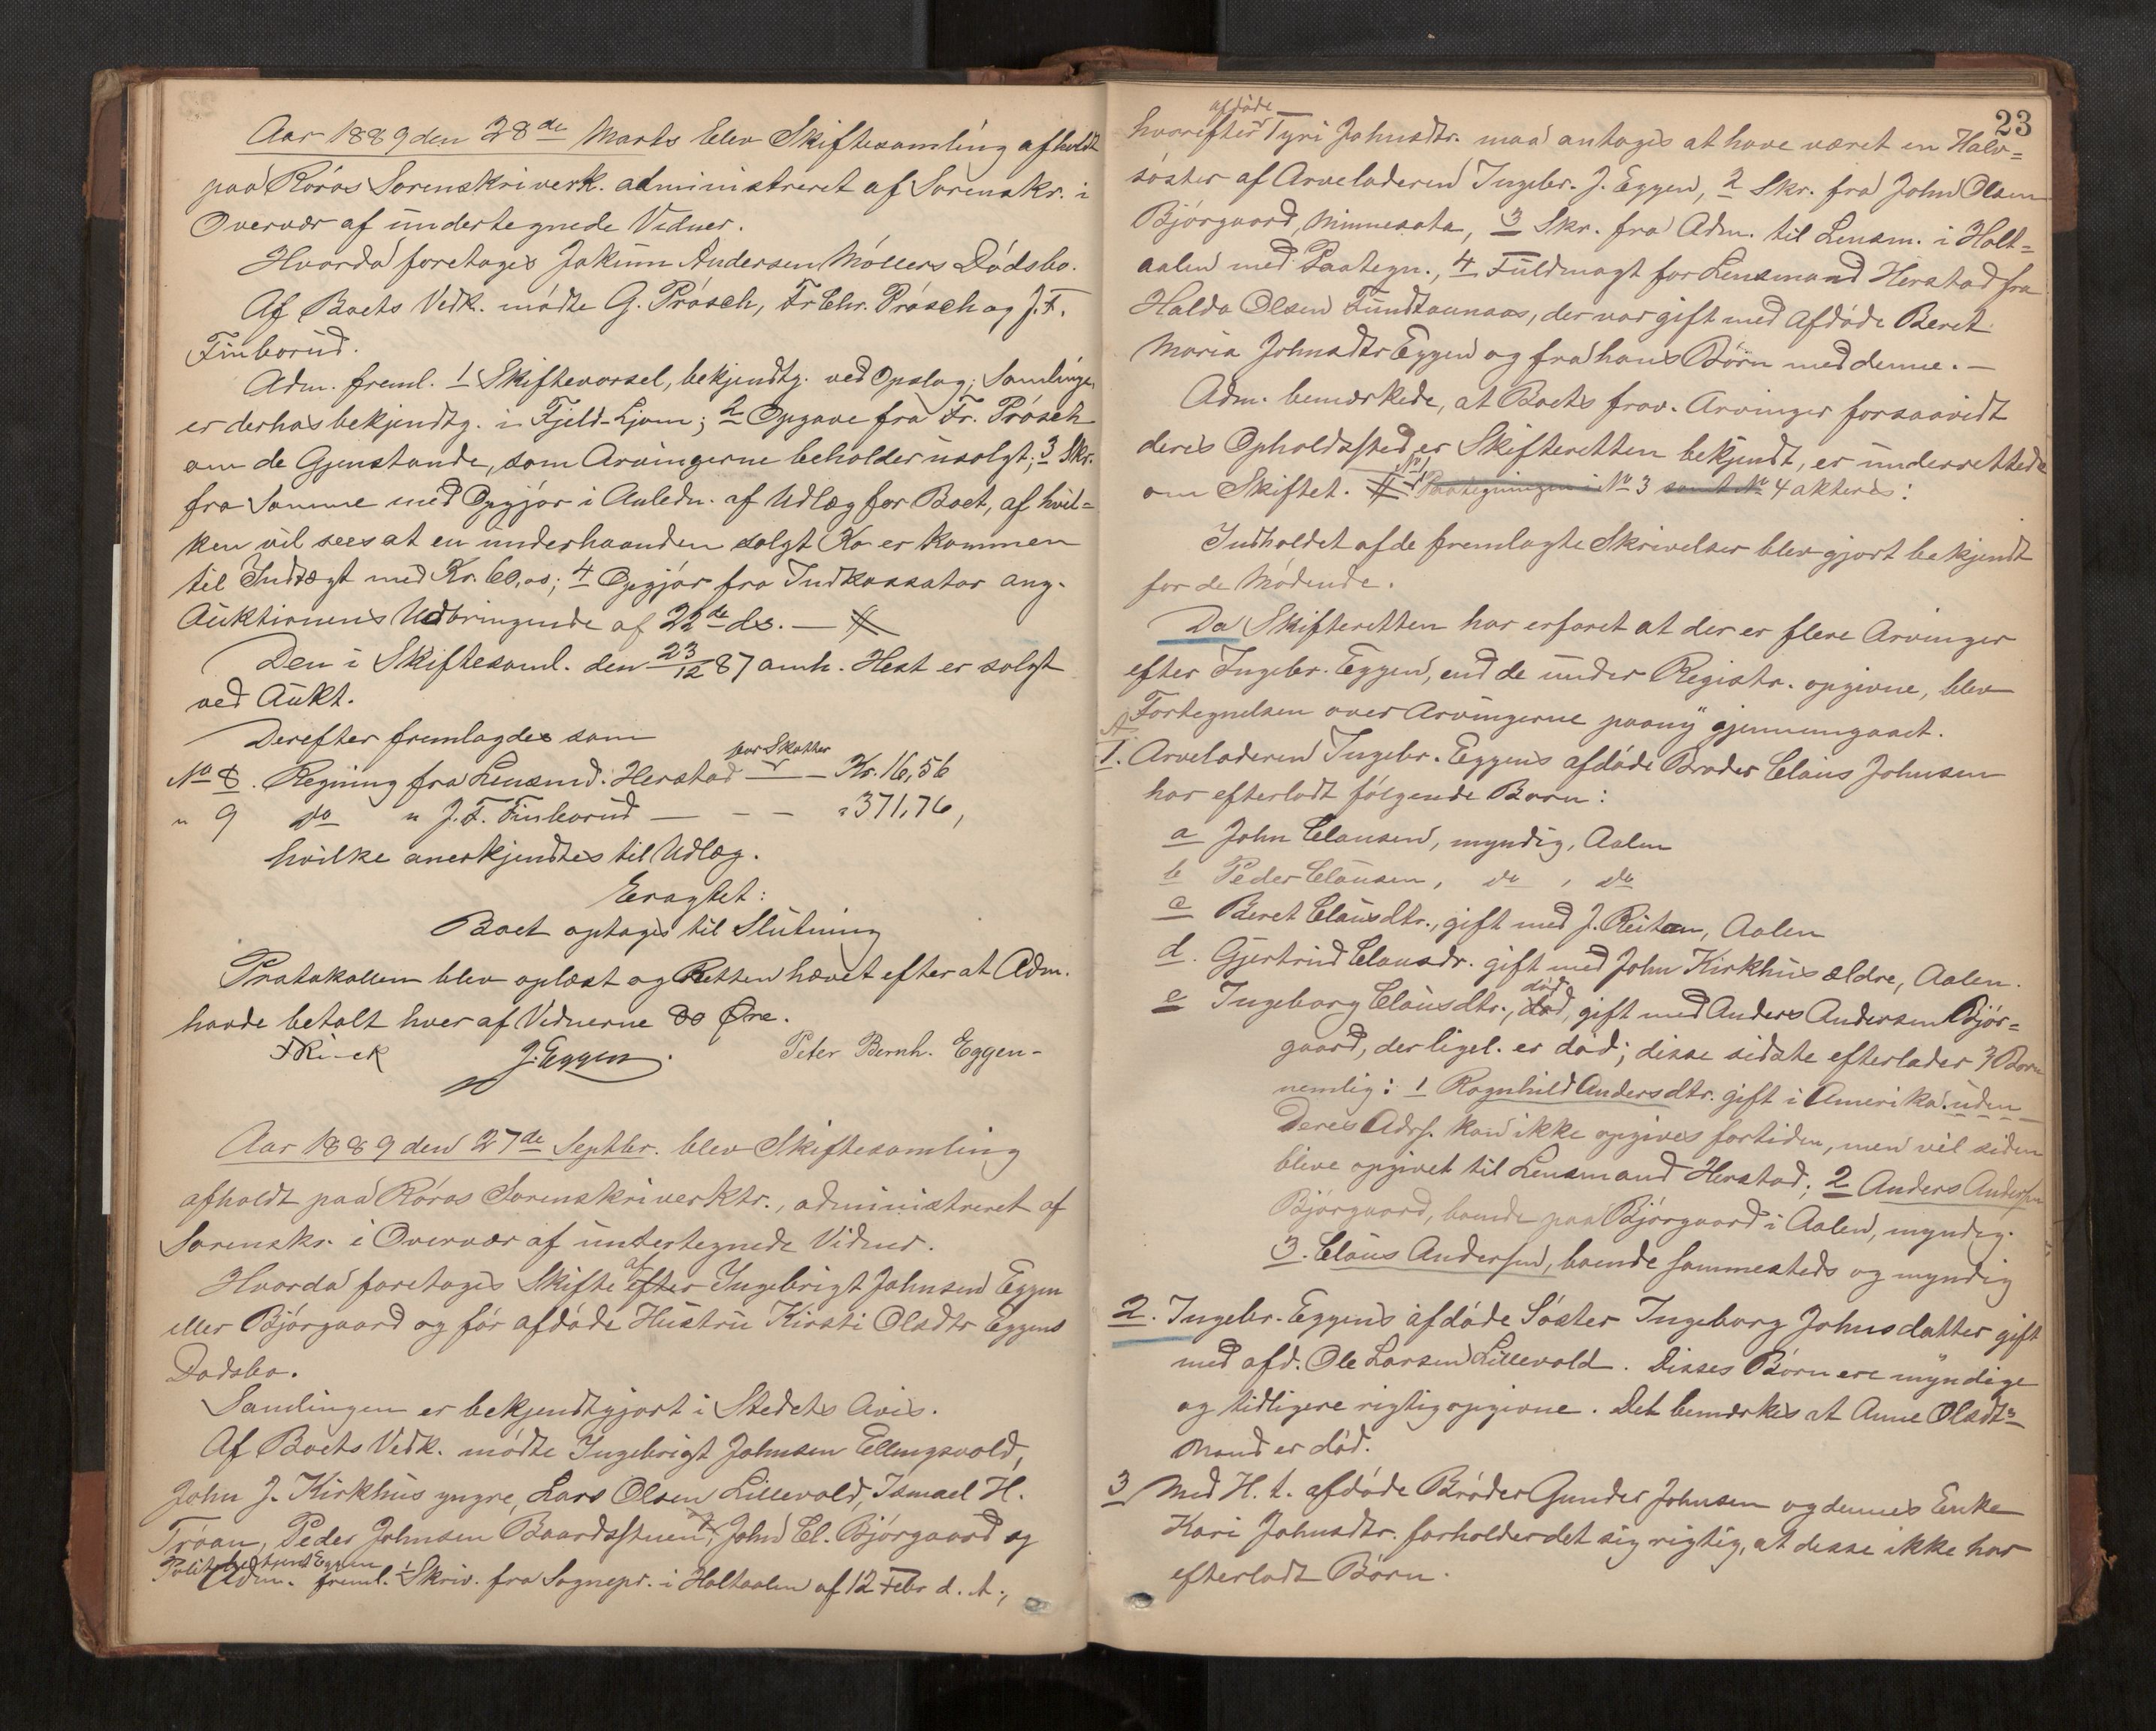 Aar 1889 den 28de Marts blev Skiftesamling afholdt
paa Röros Sorenskriverk. administreret af Sorenskr. i
Overvær af undertegnede Vidner.
Hvorda foretoges Jakum Andersen Möllers Dödsbo.
Af Boets Vedk. mödte G. Prösch, Fr Chr. Prösch og J. F.
Finborud.
Adm. freml. 1 Skiftevarsel, bekjendtg. ved Opslag; Samlingen
er derhos bekjendtg. i Fjeld-Ljom; 2 Opgave fra Fr. Prösch
om de Gjenstande, som Arvingerne beholder usolgt; 3 Skr.
fra Samme med Opgjör i Anledn. af Udlæg for Boet, af hvil=
ken vil sees at en underhaanden solgt Ko er kommen
til Indtægt med Kr. 60,00; 4 Opgjör fra Indkassator ang.
Auktionens Udbringende af 22de ds. —
Den i Skiftesaml. den 23/12 87 omh. Hest er solgt
ved Aukt.
Derefter fremlagdes som
No 8. Regning fra Lensmd. Herstad for Skatter — Kr. 16,56
" 9 do " J. F. Finborud — - - " 371,76,
hvilke anerkjendtes til Udlæg.
Eragtet:
Boet optages til Slutning
Protokollen blev oplæst og Retten hævet efter at Adm.
havde betalt hver af Vidnerne 80 Öre.
J. Eggen. Peter Bernh. Eggen-
Aar 1889 den 27de Septbr. blev Skiftesamling
afholdt paa Röros Sorenskriverktr., administreret af
Sorenskr. i Overvær af undertegnede Vidner.
Hvorda foretoges Skifte af efter Ingebrigt Johnsen Eggen
eller Björgaard og för afdöde Hustru Kirsti Olsdtr Eggens
Dodsbo.
Samlingen er bekjendtgjort i Stedets Avis.
Af Boets Vedk. mödte Ingebrigt Johnsen Ellingsvold,
John J. Kirkhus yngre, Lars Olsen Lillevold, Ismael H.
Tröan, Peder Johnsen Baardsstuen, John Cl. Björgaard og
Politibetjent Eggen
Adm. freml. 1 Skriv. fra Sognepr. i Holtaalen af 12 Febr d. A.,
23
hvorefter afdöde Tyri Johnsdtr. maa antages at have været en Halv=
söster af Arveladeren Ingebr. J. Eggen, 2 Skr. fra John Olsen
Björgaard, Minnesota, 3 Skr. fra Adm. til Lensm. i Holt=
aalen med Paategn., 4 Fuldmagt for Lensmand Herstad fra
Halda Olsen Fundtaunaas, der var gift med Afdöde Beret
Maria Johnsdtr Eggen og fra hans Börn med denne. —
Adm. bemærkede, at Boets frav. Arvinger forsaavidt
deres Opholdssted er Skifteretten bekjendt, er underrettede
om Skiftet. No 1 Paategningen i No 3 samt No 4 akteres:
Indholdet af de fremlagte Skrivelser blev gjort bekjendt
for de Mödende.
Da Skifteretten har erfaret at der er flere Arvinger
efter Ingebr. Eggen, end de under Registr. opgivne, blev
Fortegnelsen over Arvingerne paany gjennemgaaet.
A
1. Arveladeren Ingebr. Eggens afdöde Broder Claus Johnsen
har efterladt fölgende Born:
a John Clausen, myndig, Aalen
b Peder Clausen, do, do
c Beret Clausdtr., gift med J. Reitan, Aalen
d. Gjertrud Clausdr. gift med John Kirkhus ældre, Aalen.
e Ingeborg Clausdtr., död, gift med Anders Andersen Björ=
gaard, der ligel. er död; disse sidste efterlader 3 Born
nemlig: 1 Ragnhild Andersdtr. gift i Amerika. uden
Deres Adrs. kan ikke opgives fortiden, men vil siden
blive opgivet til Lensmand Herstad; 2 Anders Andersen
Björgaard, boende paa Björgaard i Aalen, myndig.
3. Claus Andersen, boende sammesteds og myndig
2. Ingebr. Eggens afdöde Söster Ingeborg Johnsdatter gift
med afd. Ole Larsen Lillevold. Disses Börn ere myndige
og tidligere rigtig opgivne. Det bemærkes at Anne Olsdtrs
Mand er död.
3 Med H. t. afdöde Bröder Gunder Johnsen og dennes Enke
Kari Johnsdtr. forholder det sig rigtig, at disse ikke har
efterladt Börn.